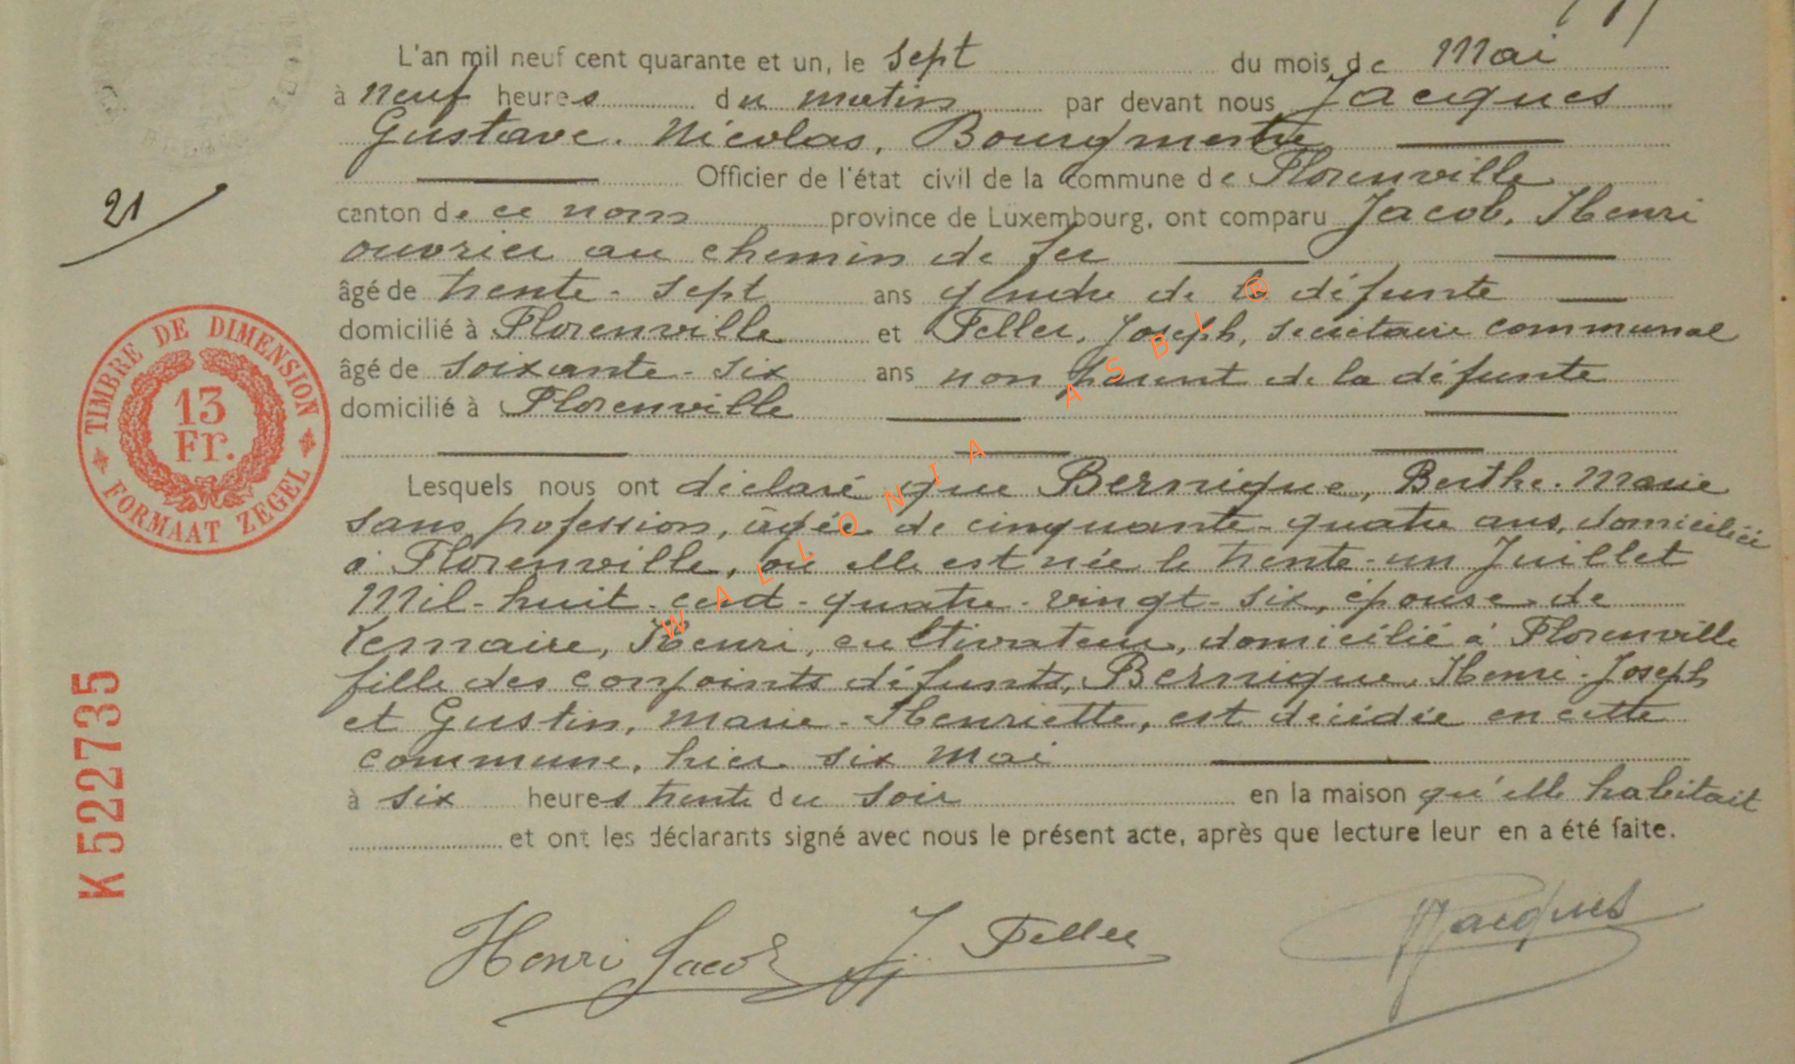 L'an mil neuf cent quarante et un, le sept du mois de Mai
à neuf heures du matin par devant nous Jacques
Gustave. Nicolas, Bourgmestre
Officier de l'état civil de la commune de Florenville
21
canton de ce nom province de Luxembourg, ont comparu Jacob, Henri
ouvrier au chemin de fer
âgé de trente-sept ans gendre de la défunte
domicilié à Florenville et Feller, Joseph, secrétaire communal
âgé de soixante-six ans non parent de la défunte
domicilié à Florenville
TIMBRE DE DIMENSION
13
Fr.
FORMAAT ZEGEL
Lesquels nous ont déclaré que Bernique, Berthe-Marie
sans profession, âgée de cinquante-quatre ans, domiciliée
à Florenville, où elle est née le trente-un Juillet
Mil-huit-cent-quatre-vingt-six, épouse de
Lemaire, Henri, cultivateur, domicilié à Florenville
fille des conjoints défunts, Bernique, Henri-Joseph
et Gustin, Marie-Henriette, est décédée en cette
commune, hier six mai
à six heures trente du soir en la maison qu'elle habitait
et ont les déclarants signé avec nous le présent acte, après que lecture leur en a été faite.
K 522735
WALLONIA ASBL ®
Henri Jacob J. Feller Jacques